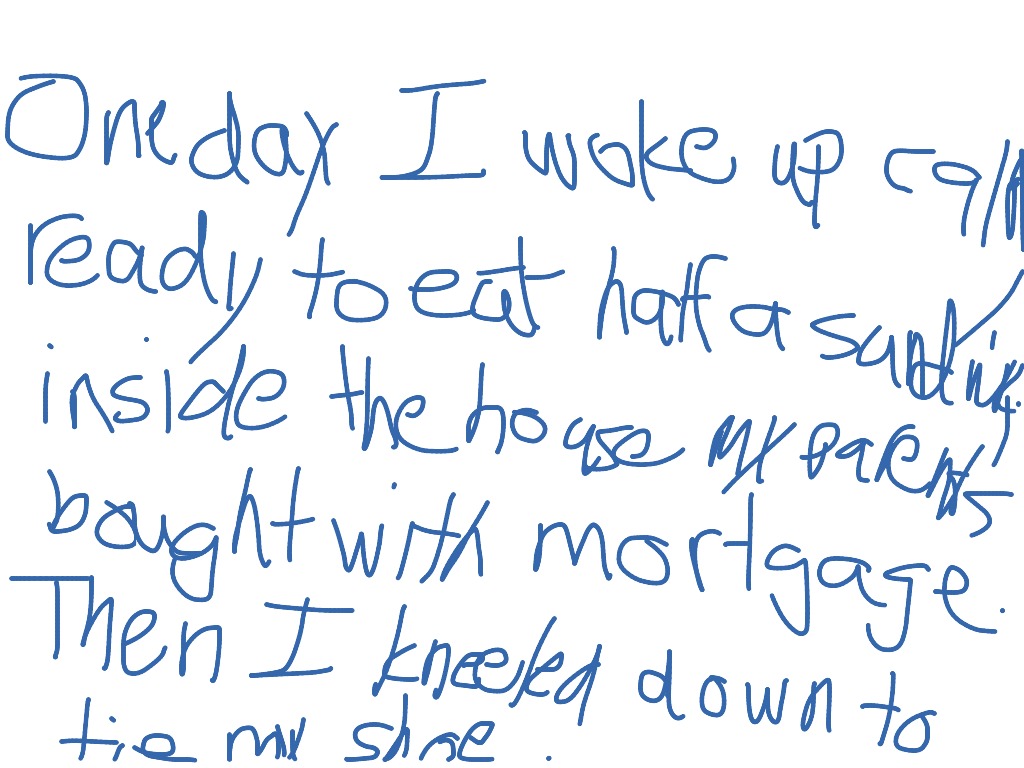 One day I woke up
ready to eat half a
inside the house my parents
bought with mortgage.
Then I kneeled down to
tie my shoe.